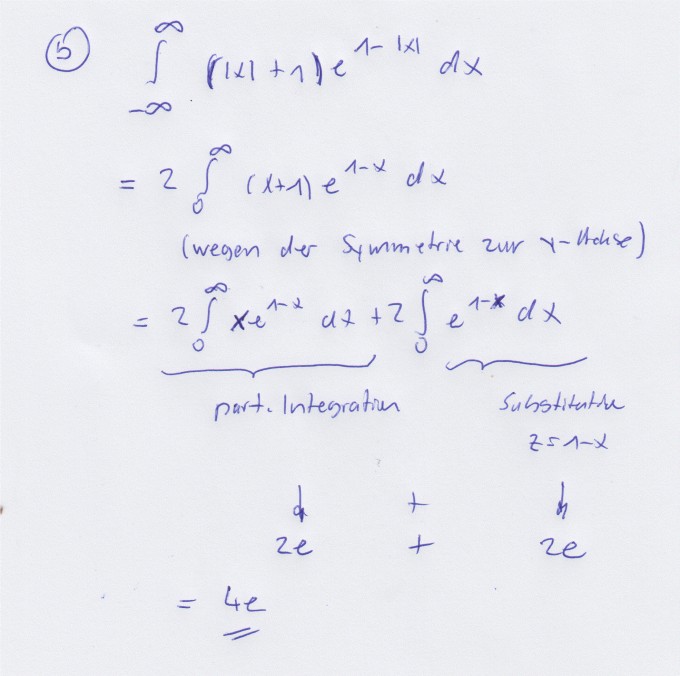 b
∫_{-∞}^{∞} (|x| + 1) e^{1-|x|} dx
= 2 ∫_{0}^{∞} (x+1) e^{1-x} dx
(wegen der Symmetrie zur y-Achse)
= 2 ∫_{0}^{∞} x e^{1-x} dx + 2 ∫_{0}^{∞} e^{1-x} dx
part. Integration Substitution
z = 1-x
↓ + ↓
2e + 2e
= 4e